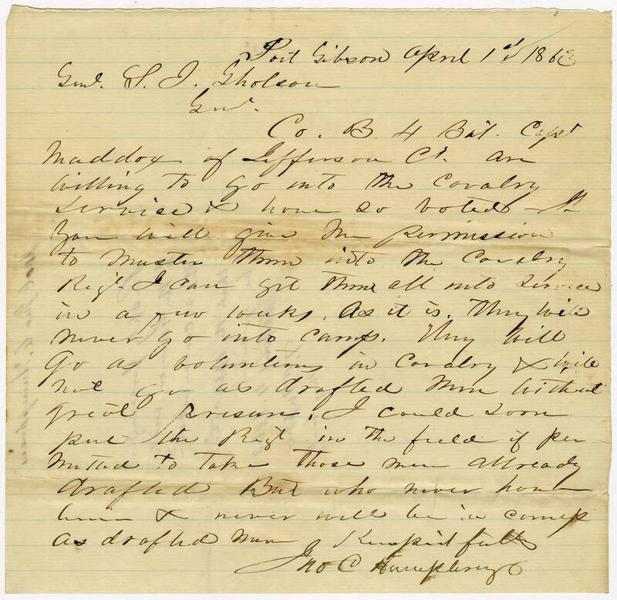 Port Gibson April 1st 1863
Genl. S. J. Gholson
Genl.
Co. B 4 Bat. Capt
Maddox of Jefferson Ct. are
willing to go into the Cavalry
service & have so voted If
you will give me permission
to muster them into the Cavalry
Regt I can get them all into service
in a few weeks. As it is. They will
never go into camp. They will
go as volunteers in Cavalry & will
not go as drafted men without
great presure. I could soon
put the Regt in the field if per
mitted to take those men already
drafted But who never have
been & never will be in camp
as drafted men Respectfully
Jno C Humphreys